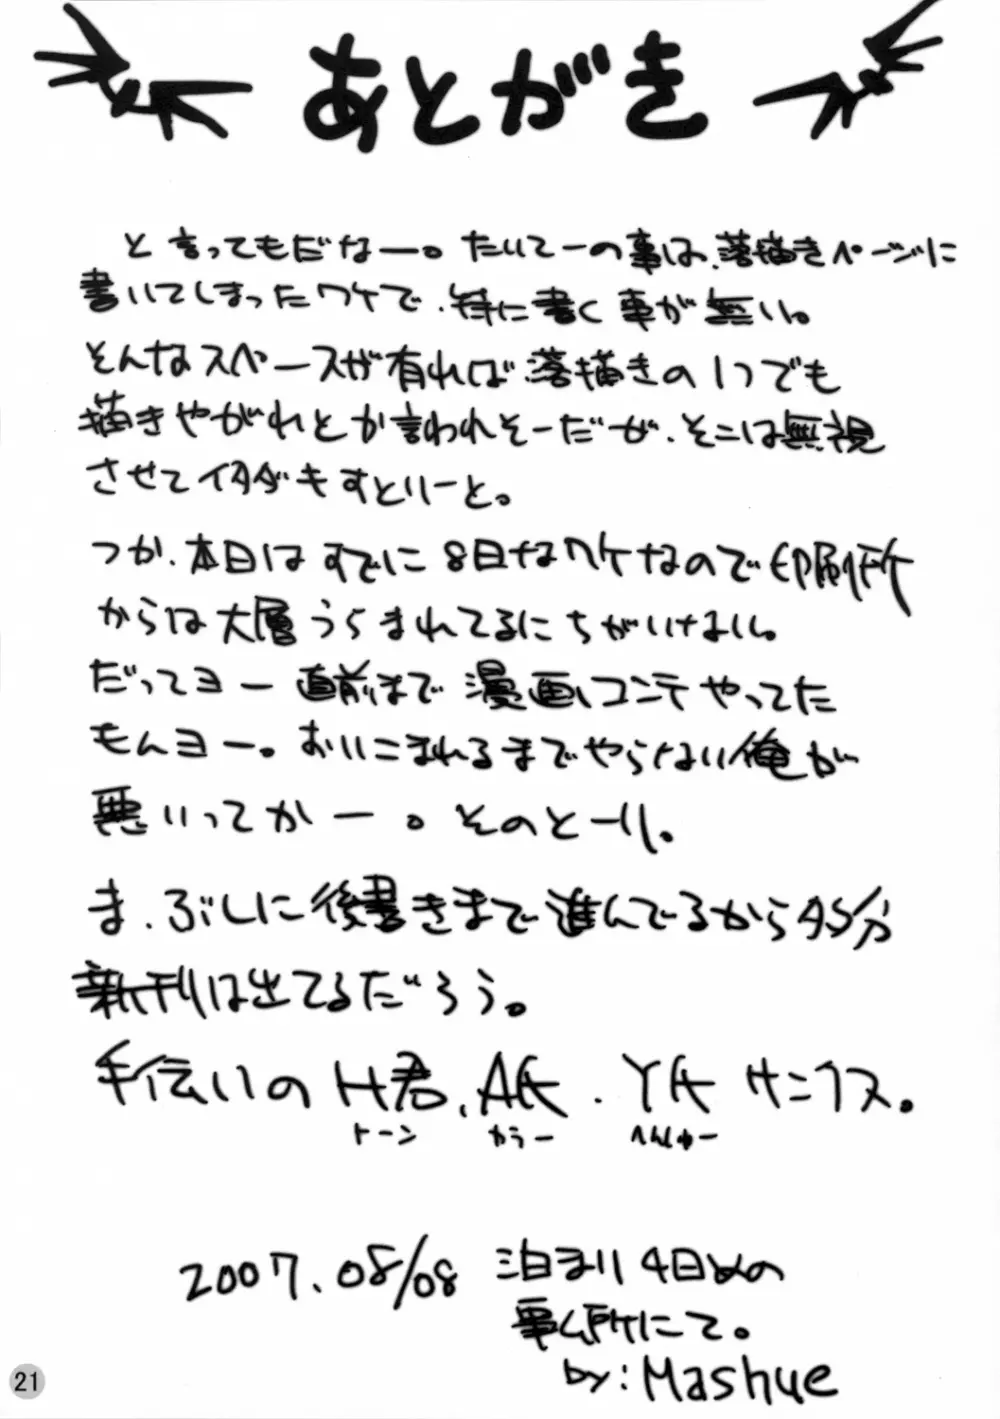 あとがき
と言ってもだなー。たいてーの事は、落描きページに
書いてしまったワケで、特に書く事が無い。
そんなスペースが有れば落描きの1つでも
描きやがれとか言われそーだが、そこは無視
させてイタダキすといーと。
つか、本日はすでに8日なワケなので印刷所
からは大層うらまれてるにちがいけない。
だってヨー直前まで漫画、コンテやってた
もんヨー。おいこまれるまでやらない俺が
悪いってかー。そのとーり。
ま、ぶじに後書きまで進んでるから多分
新刊は出てるだろう。
手伝いのH君、A氏、Y氏サンクス。
トーン カラー へんしゅー
2007.08/08 泊まり4日めの
事ム所にて。
by:Mashue
21